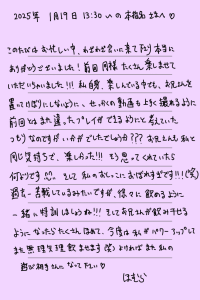 2025年 1月19日 13:30〜の 本指名さまへ♡
このたびはお忙しい中、わざわざ会いに来て下さり本当に
ありがとうございました！前回同様たくさん楽しませて
いただいちゃいました!!! 私の癖、楽しんでいる中でも、お兄さんを
置いてけぼりにしないように、せっかくの動画も上手く撮れるように
前回とはまた違ったプレイができるようにと考えていた
つもりなのですが いかがでしたでしょうか??? お兄さんも私と
同じ気持ちで、楽しかった!!! そう思ってくれていたら
何よりです そして 私のおしっこにおぼれすぎです!!(笑)
過去一苦戦しているみたいですが、徐々に飲めるように
一緒に特訓しましょうね!!! そしてお兄さんが飲み干せる
ようになったらたくさんほめて、今度は私がパワーアップして
また無理矢理飲ませます(笑) よければ また 私の
遊び相手さんになって下さい♡